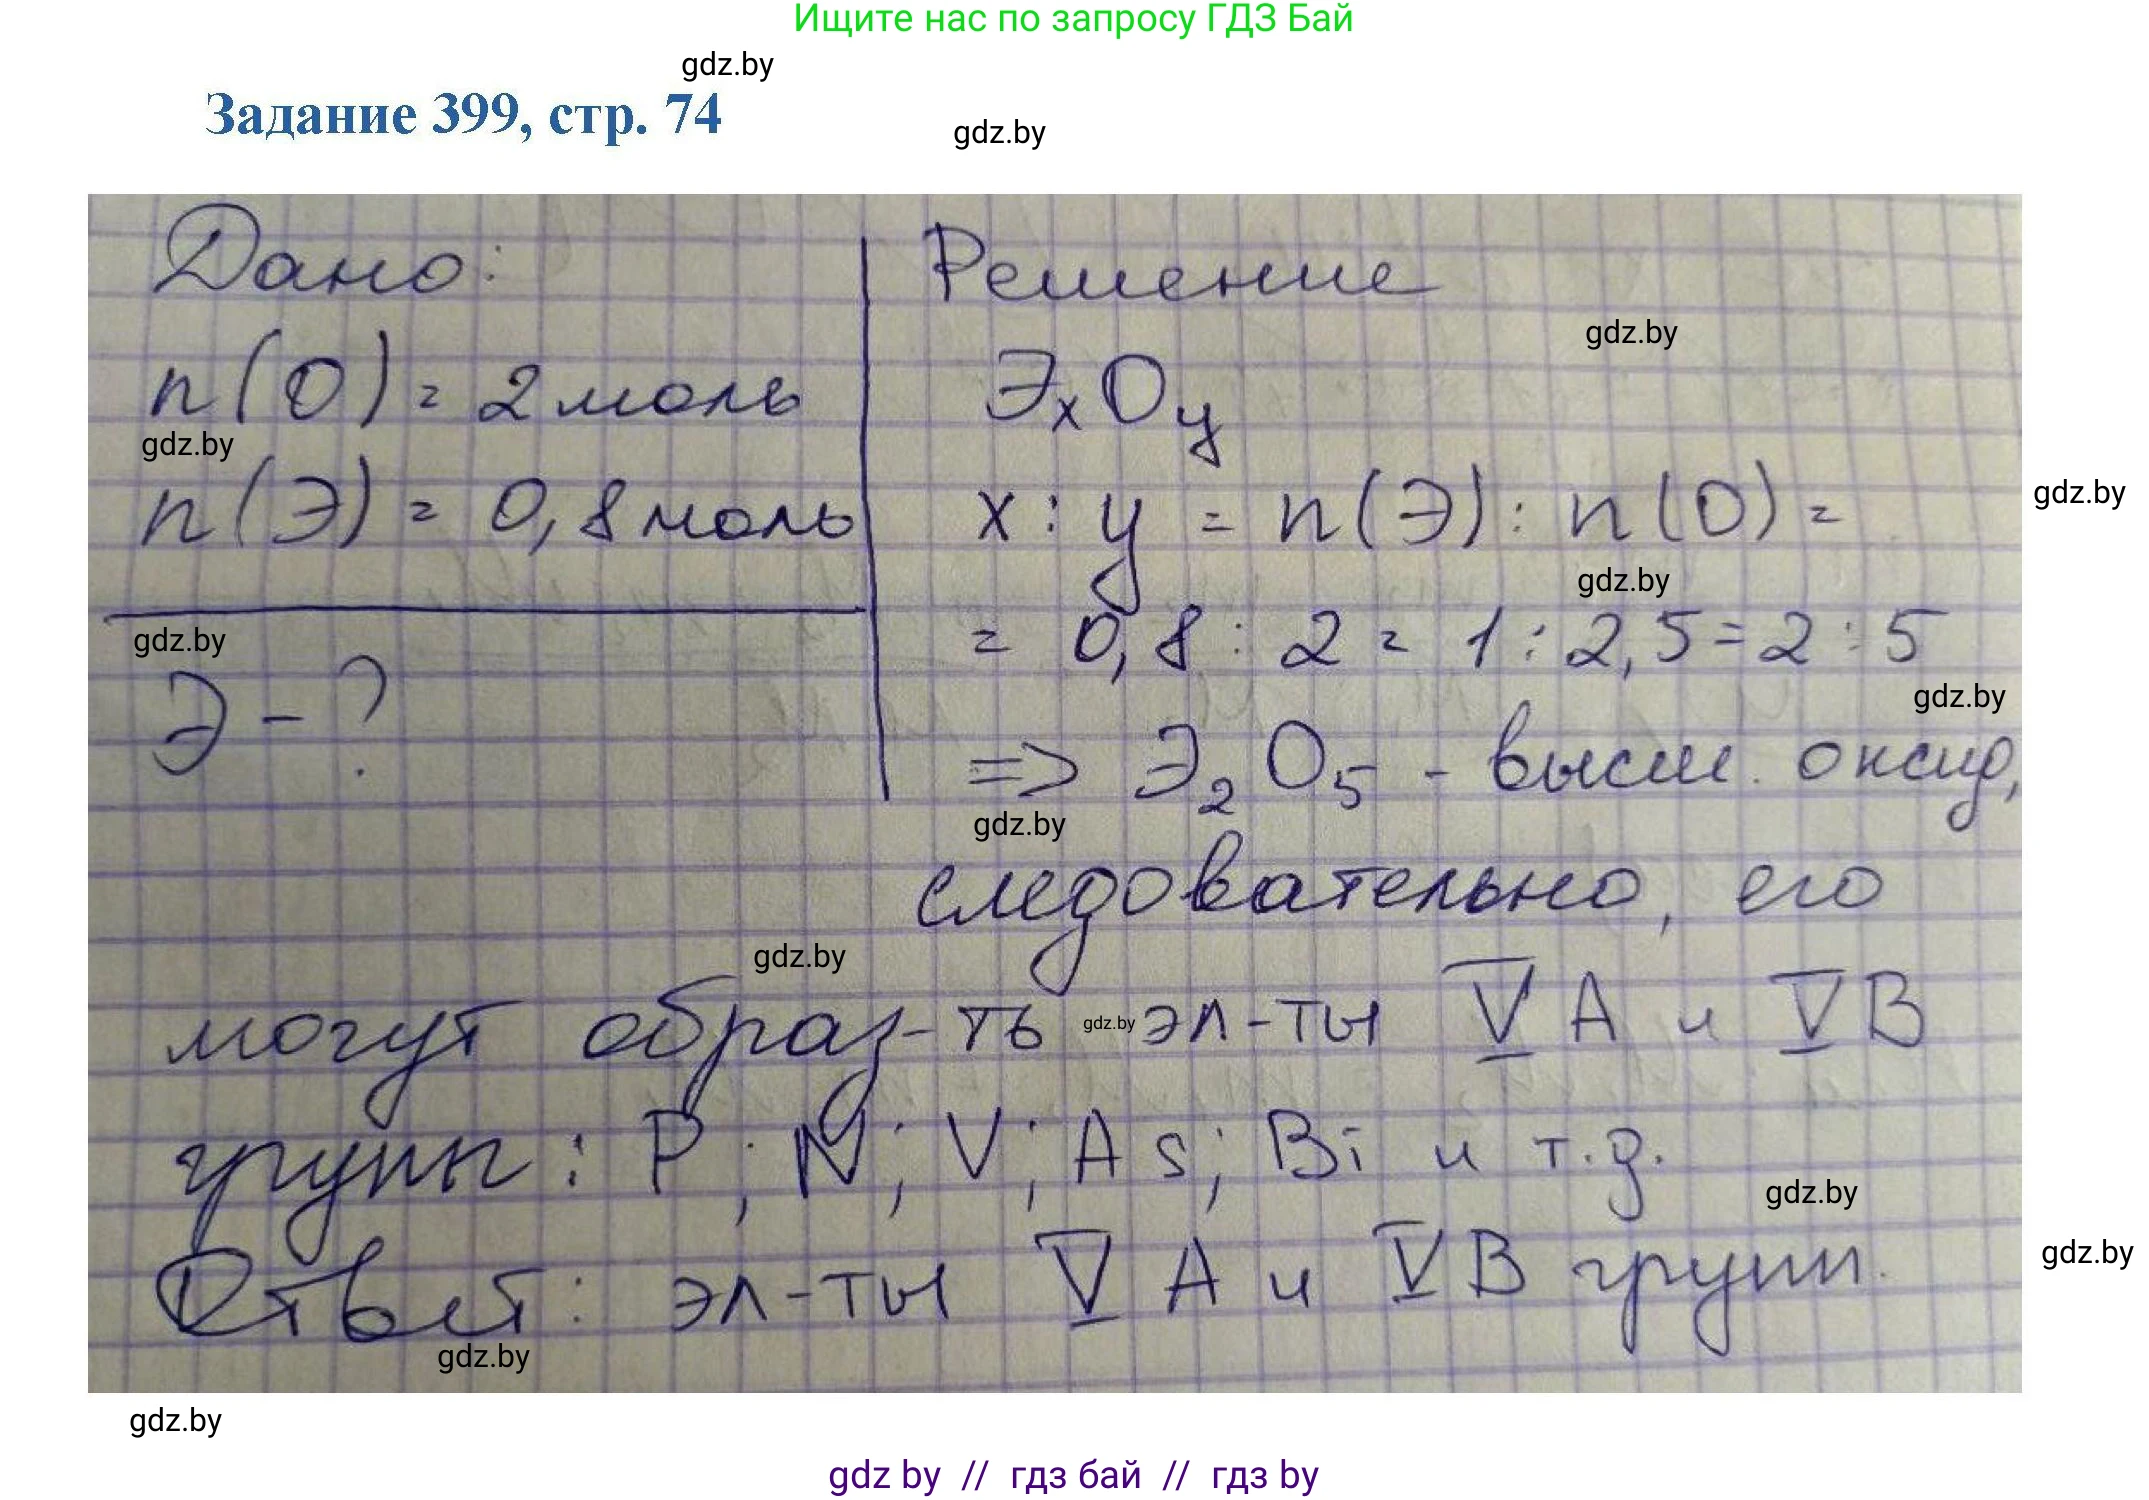 Ищите нас по запросу ГДЗ Бай
gdz.by
Задание 399, стр. 74
gdz.by
Дано:
Решение
gdz.by
n(O) = 2 моль
ЭₓOᵧ
gdz.by
n(Э) = 0,8 моль
x : y = n(Э) : n(O) =
gdz.by
gdz.by
= 0,8 : 2 = 1 : 2,5 = 2 : 5
gdz.by
Э - ?
gdz.by
=> Э₂O₅ - высш. оксид,
gdz.by
следовательно, его
gdz.by
могут образ-ть эл-ты V A и V B
gdz.by
групп: P; N; V; As; Bi и т.д.
gdz.by
Ответ: эл-ты V A и V B групп.
gdz.by
gdz.by
gdz.by
gdz by // гдз бай // гдз by